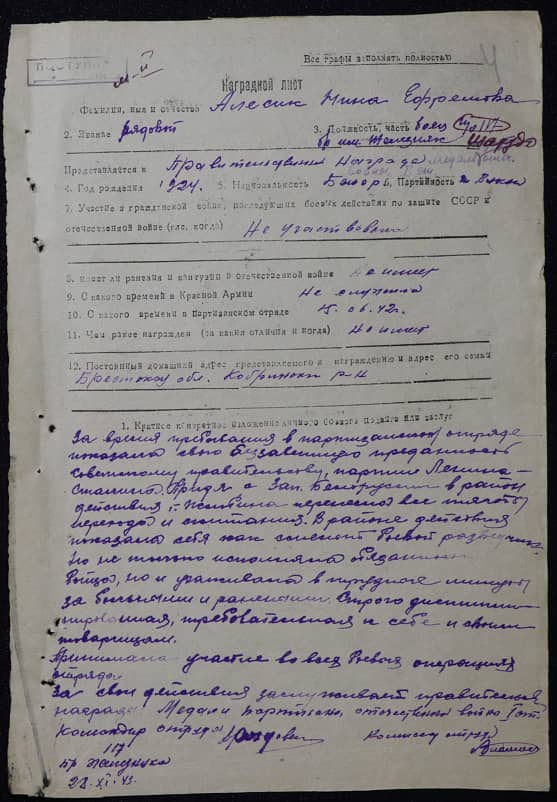 Все графы заполнять полностью
4
Наградной лист
Фамилия, имя и отчество Алесик Нина Ефремовна
2. Звание рядовой 3. Должность, часть боец
Представляется к Правительственной Награде Медаль
4. Год рождения 1924. 5. Национальность 6. Партийность
7. Участие в гражданской войне, последующих боевых действиях по защите СССР и
отечественной войне (где, когда) Не участвовала
8. имеет ли ранения и контузии в отечественной войне Не имеет
9. С какого времени в Красной Армии Не служила
10. С какого времени в Партизанском отряде 06.42г.
11. Чем ранее награжден (за какия отличия и когда) Не имеет
12. Постоянный домашний адрес представляемого к награждению и адрес его семьи
Брестской обл. Кобринский р-н
1. Краткое конкретное изложение личного боевого подвига или заслуг
За время пребывания в партизанском отряде
показала свою беззаветную преданность
советскому правительству, партии Ленина-
Сталина. Придя с Зап. Белоруссии в район
действия г. перенесла все тяготы
перехода и скитания. В районе действия
показала себя как смелый боевой
Но не только исполняла обязанности
бойца, но и ухаживала в трудное минуты
за больными и ранеными. Строго дисципли-
нированная, требовательная к себе и своим
товарищам.
Принимала участие во всех боевых операциях
отряда
За свои действия заслуживает правительств.
награды Медали партизану, отечественной войны
Командир отряда Комиссар отряда
117